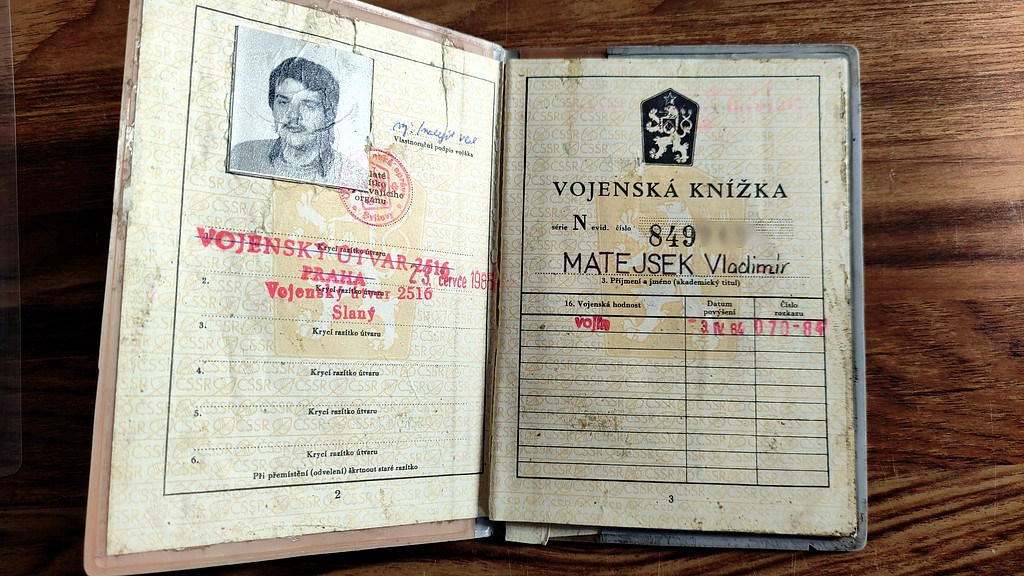 Vlastnoruční podpis vojáka
1.
Krycí razítko útvaru
VOJENSKÝ ÚTVAR 2516
PRAHA
23. července 198
2.
Krycí razítko útvaru
Vojenský útvar 2516
Slaný
3.
Krycí razítko útvaru
4.
Krycí razítko útvaru
5.
Krycí razítko útvaru
6.
Krycí razítko útvaru
Při přemístění (odvelení) škrtnout staré razítko
2
VOJENSKÁ KNÍŽKA
série N evid. číslo 849
MATEJSEK Vladimír
3. Příjmení a jméno (akademický titul)
16. Vojenská hodnost Datum povýšení Číslo rozkazu
vojín -3. IV. 84 070-84
3